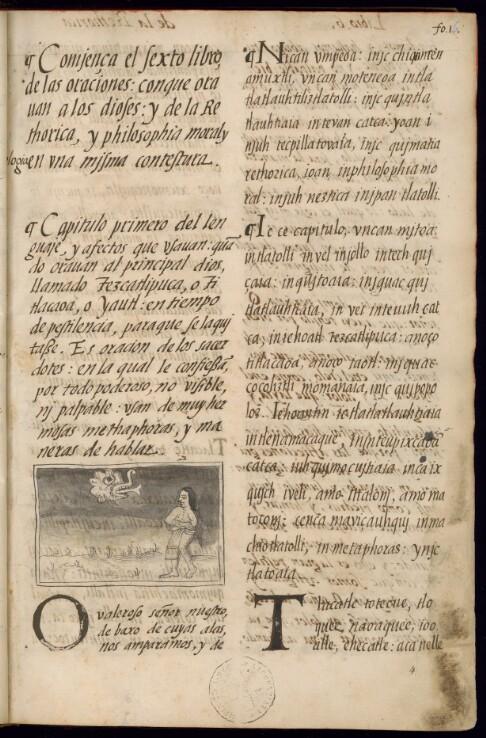 fo. 1.
¶ Comiença el sexto libro,
de las oraciones: conque ora
uan a los dioses: y de la Re
thorica, y philosophia moral y
en vna misma contextura.
¶ Capitulo primero del len
guaje, y afectos que vsauan: quā
do orauan al principal dios,
llamado Tezcatlipuca, o Ti
tlacaoa, o Yautl: en tiempo
de pestilencia, paraque se la qui
tasse. Es oracion de los sacer
dotes: en la qual le confiessā,
por todo poderoso, no visible,
nj palpable: vsan de muy her
mosas methaphoras, y ma
neras de hablar.
O valeroso señor nuestro,
de baxo de cuyas alas,
nos amparamos, y de
¶ Nican vmpeoa: injc chiquacen
amuxtli, vncan moteneoa in tla
tlatlauhtiliztlatolli: injc qujntla
tlauhtiaia inteuan catca: yoan i
njuh tecpillatovaia, injc qujmatia
rethorica, ioan in philosophia mo
ral: injuh neztica injpan tlatolli.
¶ Ic ce capitulo, vncan mjtoa:
in tlatolli in vel injollo intech qui
çaia: inquijtoaia: injquac quj
tlatlauhtiaia, in vei inteuuh cat
ca, in iehoatl tezcatlipuca: anoço
titlacaoa, anoço iaotl: injquac
cocoliztli momanaia, injc qujpopo
loz. Iehoantin tetlatlatlauhtiaia
intlenamacaque, inteupixcaoā
catca: iuh qujmocujtiaia inca ix
qujch iveli, amo ittalonj, amo ma
toconj: cenca mavicauhquj in ma
chiotlatolli, in metaphoras: ynjc
tlatoaia
Tlacatle totecue, tlo
quee, naoaquee, ioo
alle, ehecatle: aca nelle
4